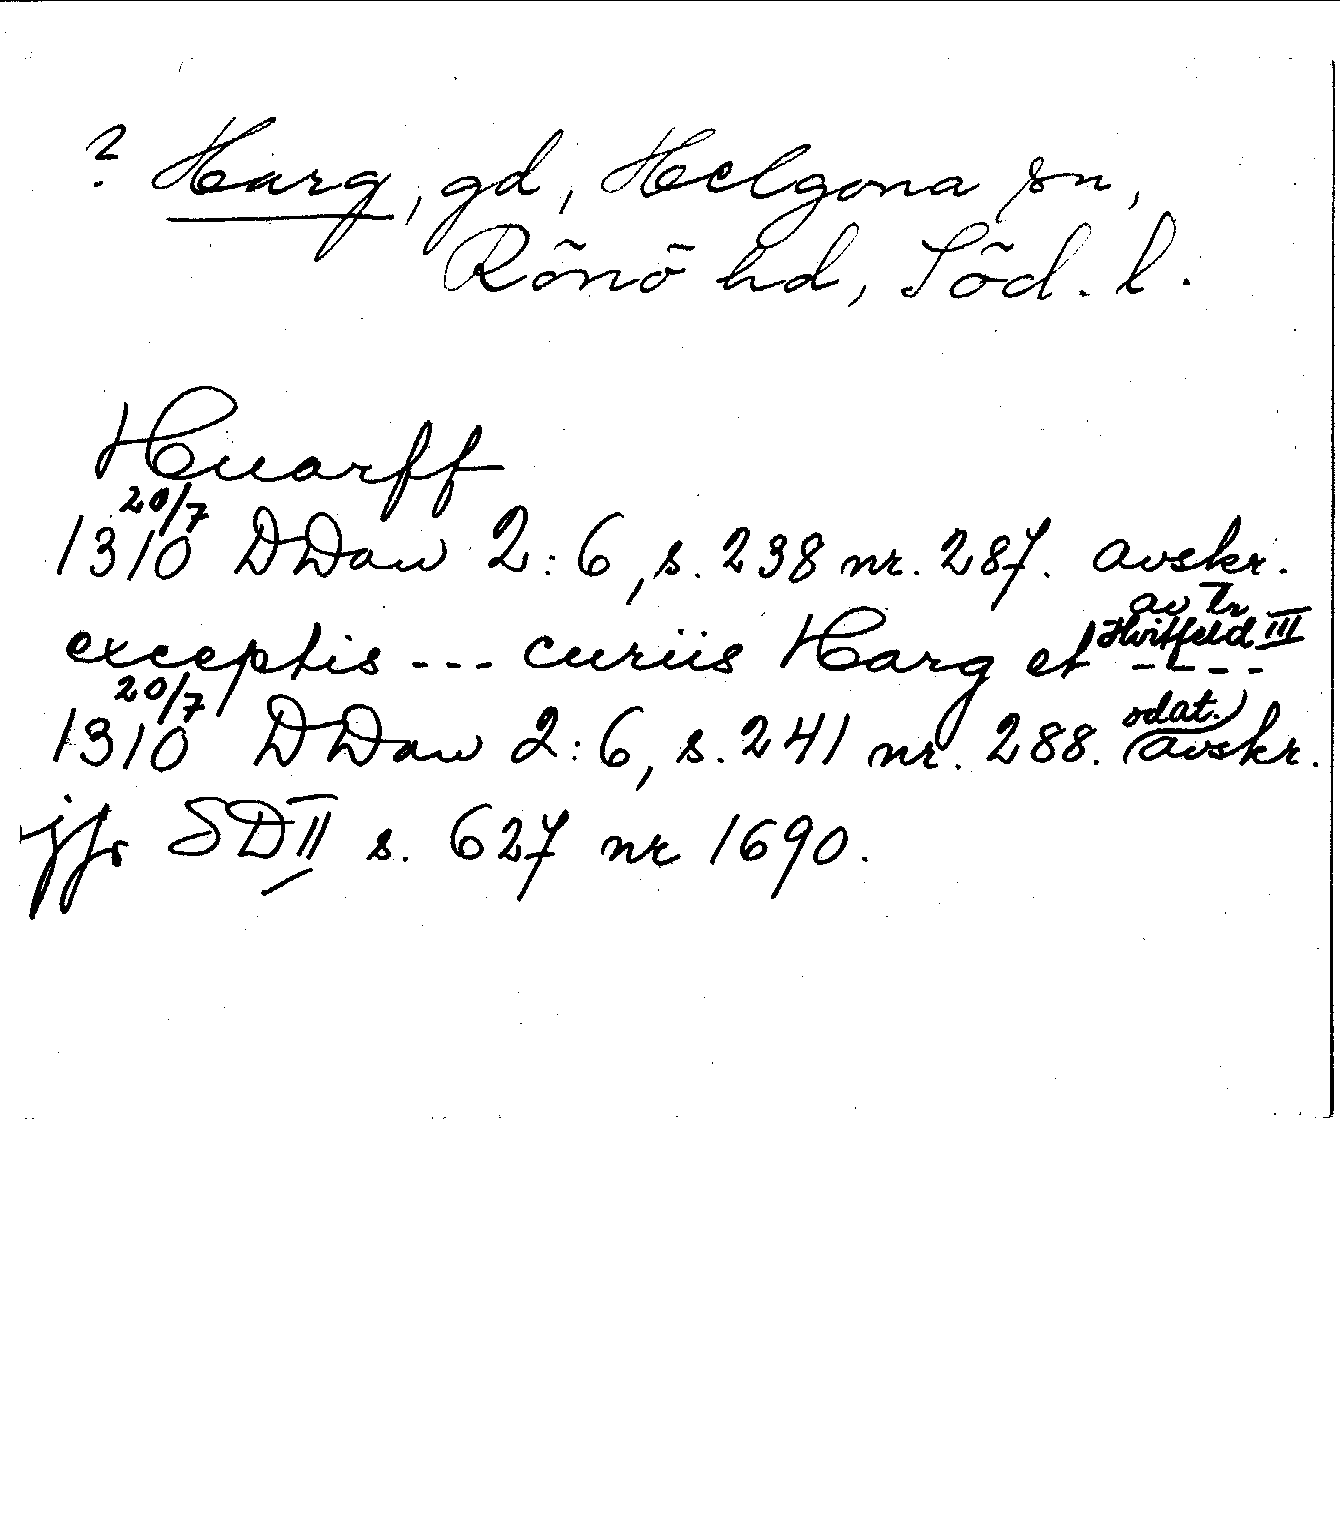 ? Harg, gd, Helgona sn,
Rönö hd, Söd. l.
Huarff
20/7
1310 DDan 2:6, s. 238 nr. 287. avskr.
av Tr
Hvitfeld III
exceptis --- curiis Harg et ----
20/7
1310 DDan 2:6, s. 241 nr. 288. odat. avskr.
jfr SD II s. 627 nr 1690.